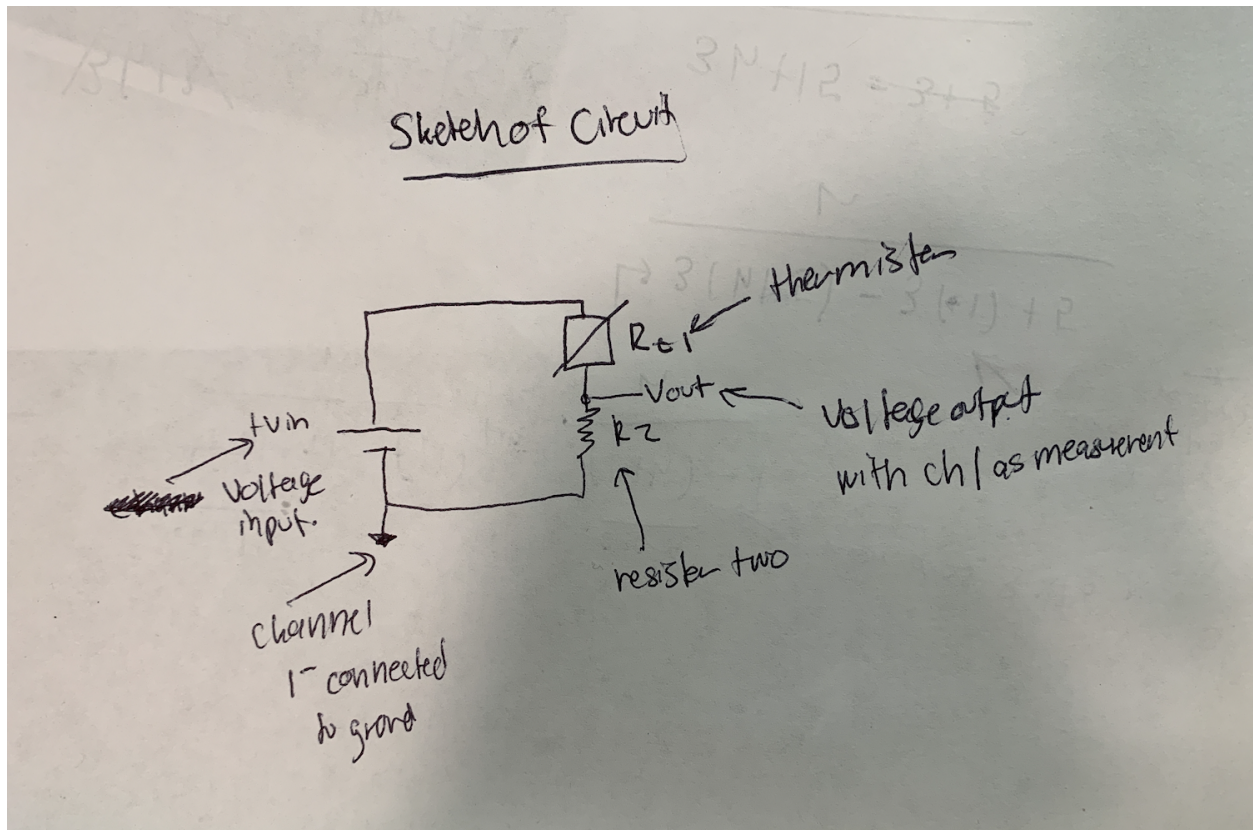 Sketch of Circuit
thermister
Rt1
Vout
Voltage output
with ch1 as measurement
+Vin
Voltage
input.
R2
resister two
Channel
1- connected
to ground